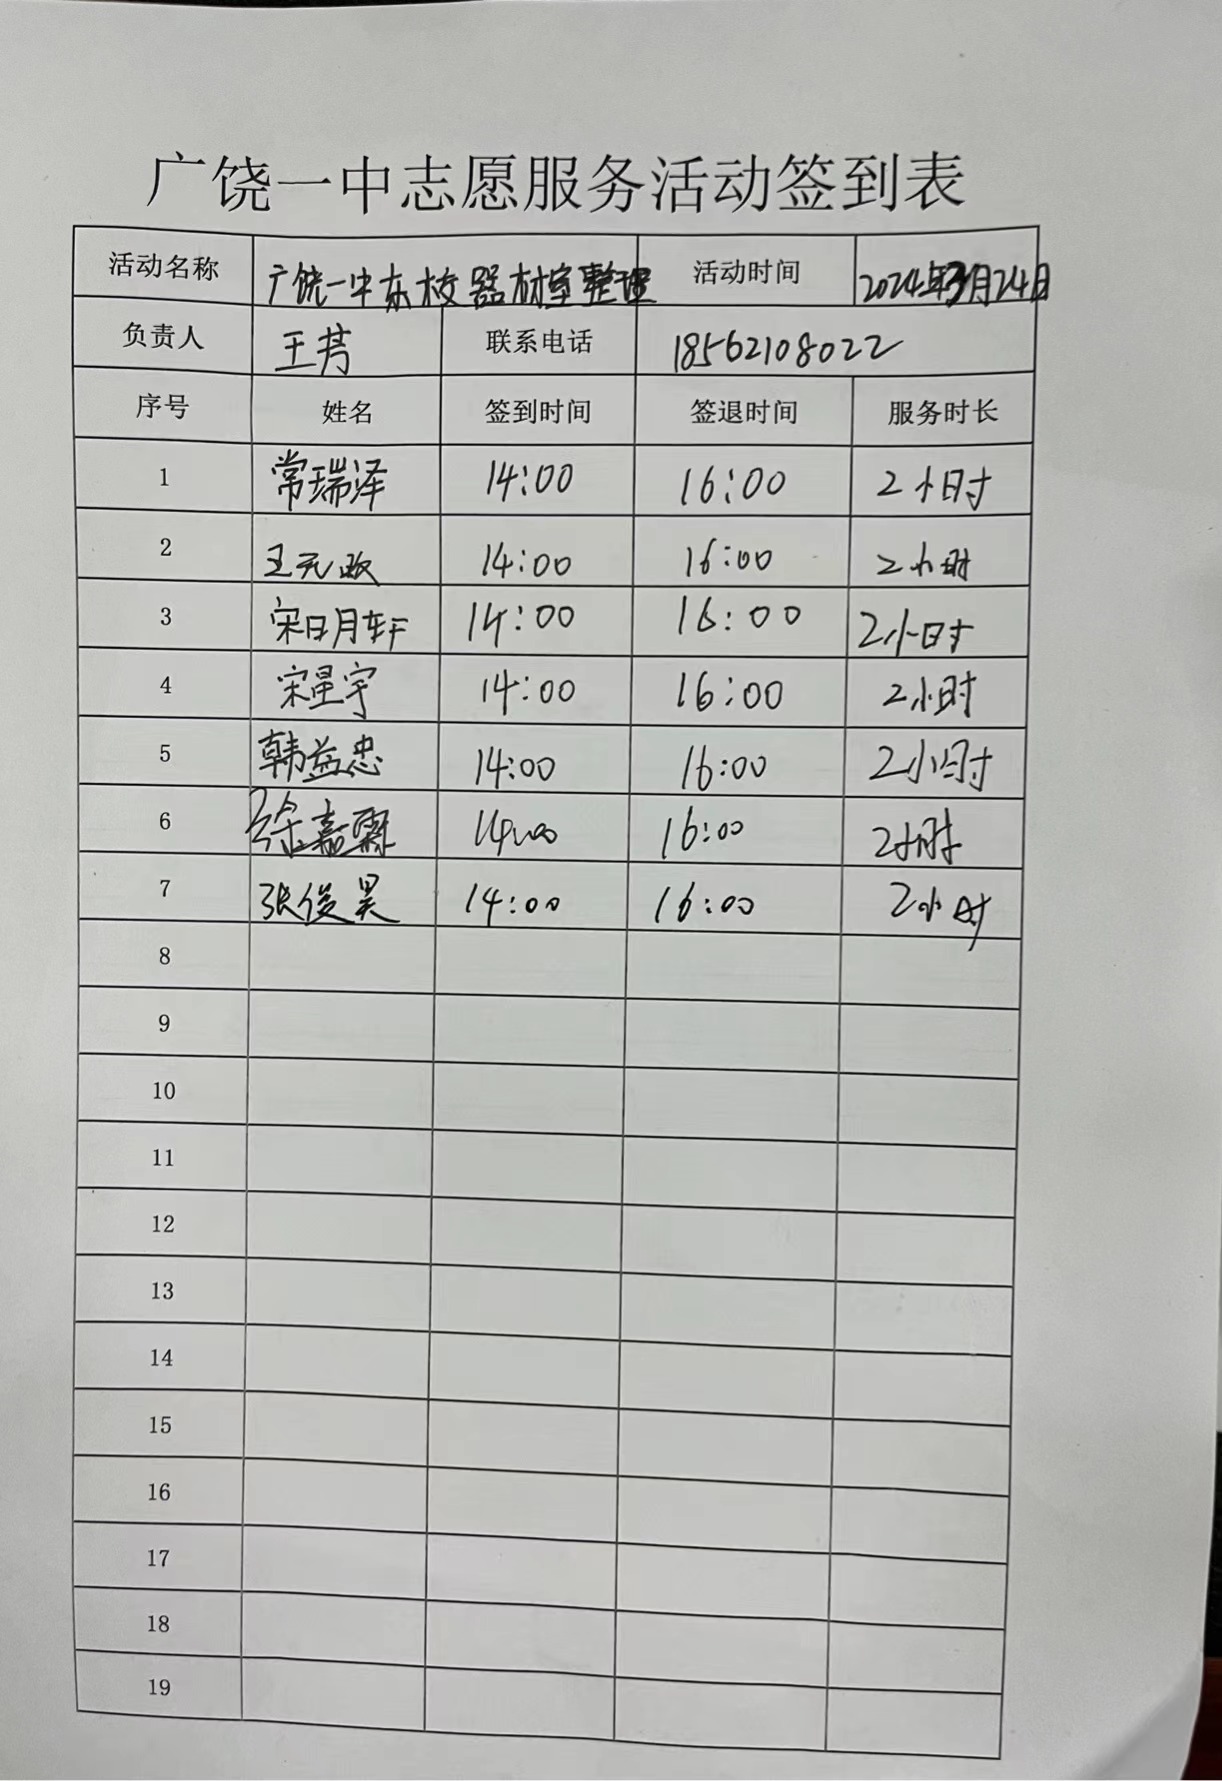 广饶一中志愿服务活动签到表
活动名称 广饶一中东校器材室整理 活动时间 2024年3月24日
负责人 王芳 联系电话 18562108022
序号 姓名 签到时间 签退时间 服务时长
1 常瑞泽 14:00 16:00 2小时
2 王元政 14:00 16:00 2小时
3 宋明轩 14:00 16:00 2小时
4 宋星宇 14:00 16:00 2小时
5 韩益忠 14:00 16:00 2小时
6 徐嘉霖 14:00 16:00 2小时
7 张俊昊 14:00 16:00 2小时
8
9
10
11
12
13
14
15
16
17
18
19